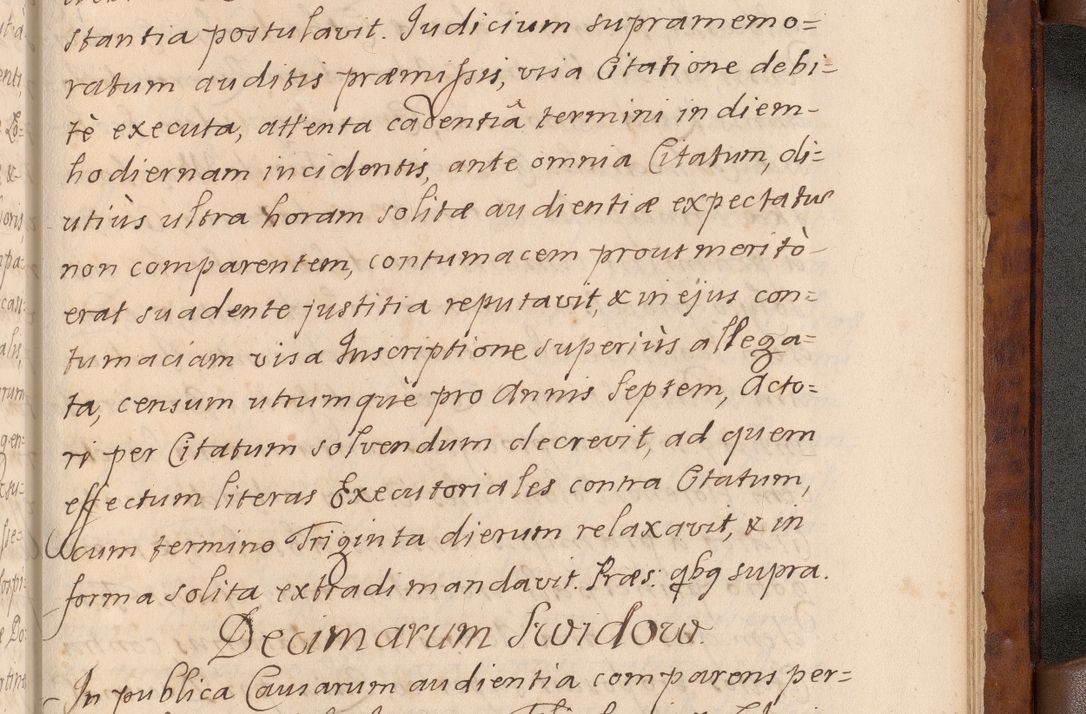 stantia postulavit. Judicium supramemo=
ratum auditis præmissis, visa Citatione debi=
tè executa, attenta cadentiâ termini in diem
hodiernam incidentis, ante omnia Citatum, di=
utiùs ultra horam solitæ audientiæ expectatus
non comparentem, contumacem prout meritò
erat suadente justitia reputavit, & in ejus con=
tumaciam visa Inscriptione superiùs allega=
ta, censum utrumquè pro Annis Septem, Acto=
ri per Citatum solvendum decrevit, ad quem
effectum literas Executoriales contra Citatum,
cum termino Triginta dierum relaxavit, & in
forma solita extradi mandavit. Præs: qbq supra.
Decimarum Swidow
In publica Causarum audientia comparens per=